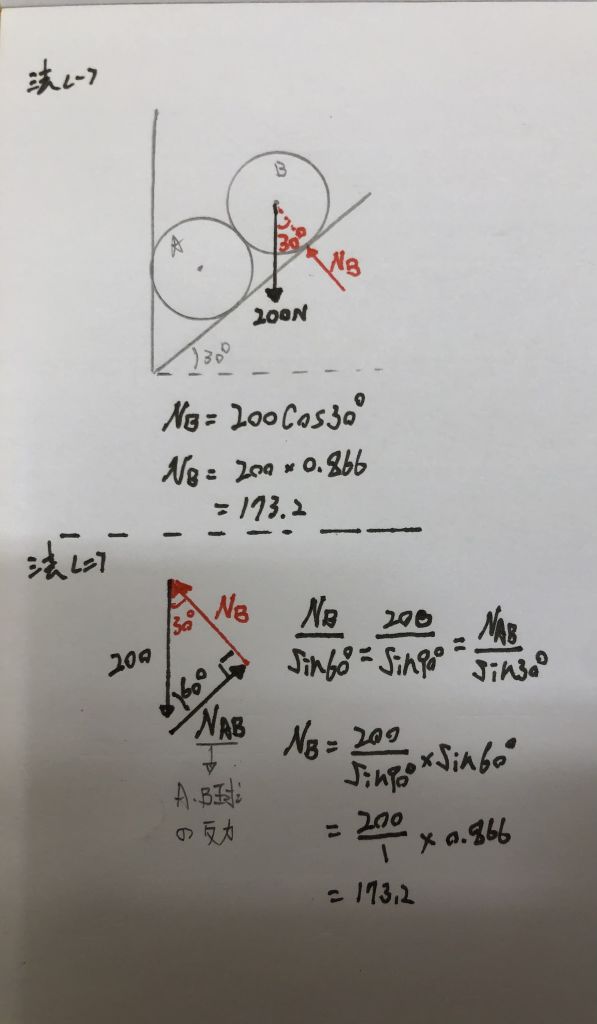 法(一)
B
A
30°
NB
200N
30°
NB = 200Cos30°
NB = 200 × 0.866
= 173.2
法(二)
30°
NB
200
60°
NAB
A.B球
の反力
NB/Sin60° = 200/Sin90° = NAB/Sin30°
NB = 200/Sin90° × Sin60°
= 200/1 × 0.866
= 173.2